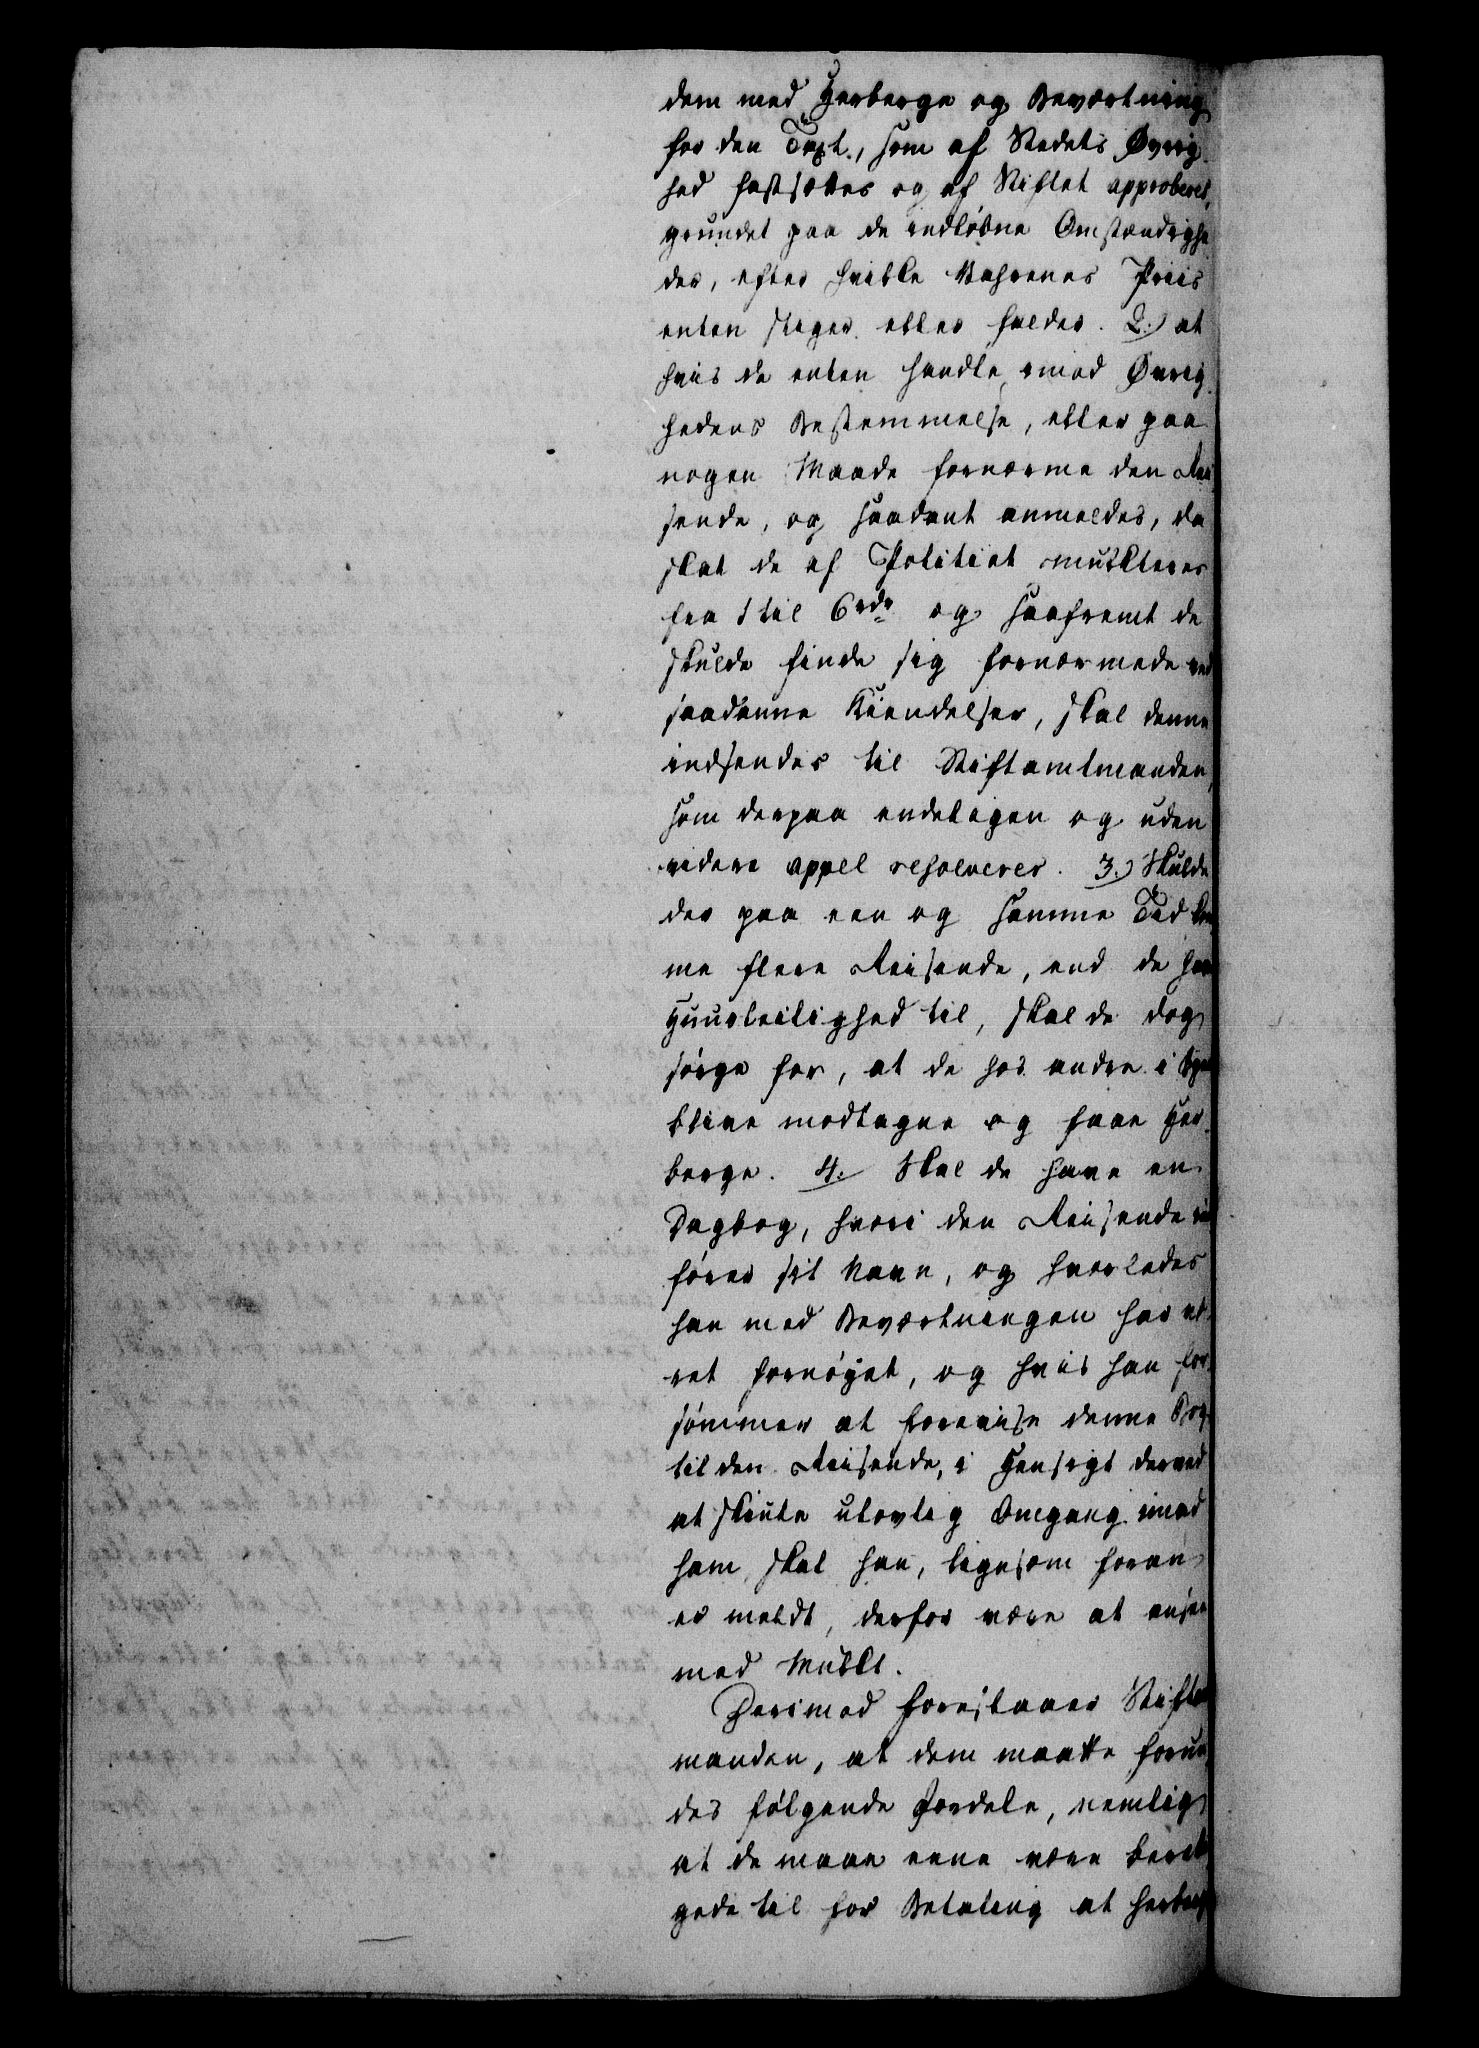 dem med Herberge og Beværtning
for den Taxt, som af Stedets Øvrig-
hed fastsættes og af Stiftet approberet,
grundet paa de indløbne Omstændighe-
der, efter hvilke Vahrenes Priis
enten stiger eller falder. 2.) at
hvis de enten handle imod Øvrig-
hedens Bestemmelse, eller paa
nogen Maade fornærme den Rei-
sende, og saadant anmeldes, da
skal de af Politiet mulkteres
fra 1 til 6 rdr og saafremt de
skulde finde sig fornærmede ved
saadanne Kiendelser, skal denne
indsendes til Stiftamtmanden,
som derpaa endeligen og uden
videre appel resolverer. 3.) Skulde
der paa een og samme Tid kom-
me flere Reisende, end de har
Huusleilighed til, skal de dog
sørge for, at de hos andre i Byen
blive modtagne og faae Her-
berge. 4. Skal de have en
Dagbog, hvori den Reisende ind-
fører sit Navn, og hvorledes
han med Beværtningen har væ-
ret fornøyet, og hvis han for-
sømmer at forevise denne Bog
til den Reisende, i Hensigt derved
at skiule ulovlig Omgang imod
ham, skal han, ligesom foran
er meldt, derfor være at ansee
med Mulkt.
Derimod foreslaaer Stiftamt-
manden, at dem maatte forun-
des følgende Fordele, nemlig
at de maae ene være beret-
gede til for Betaling at herberge